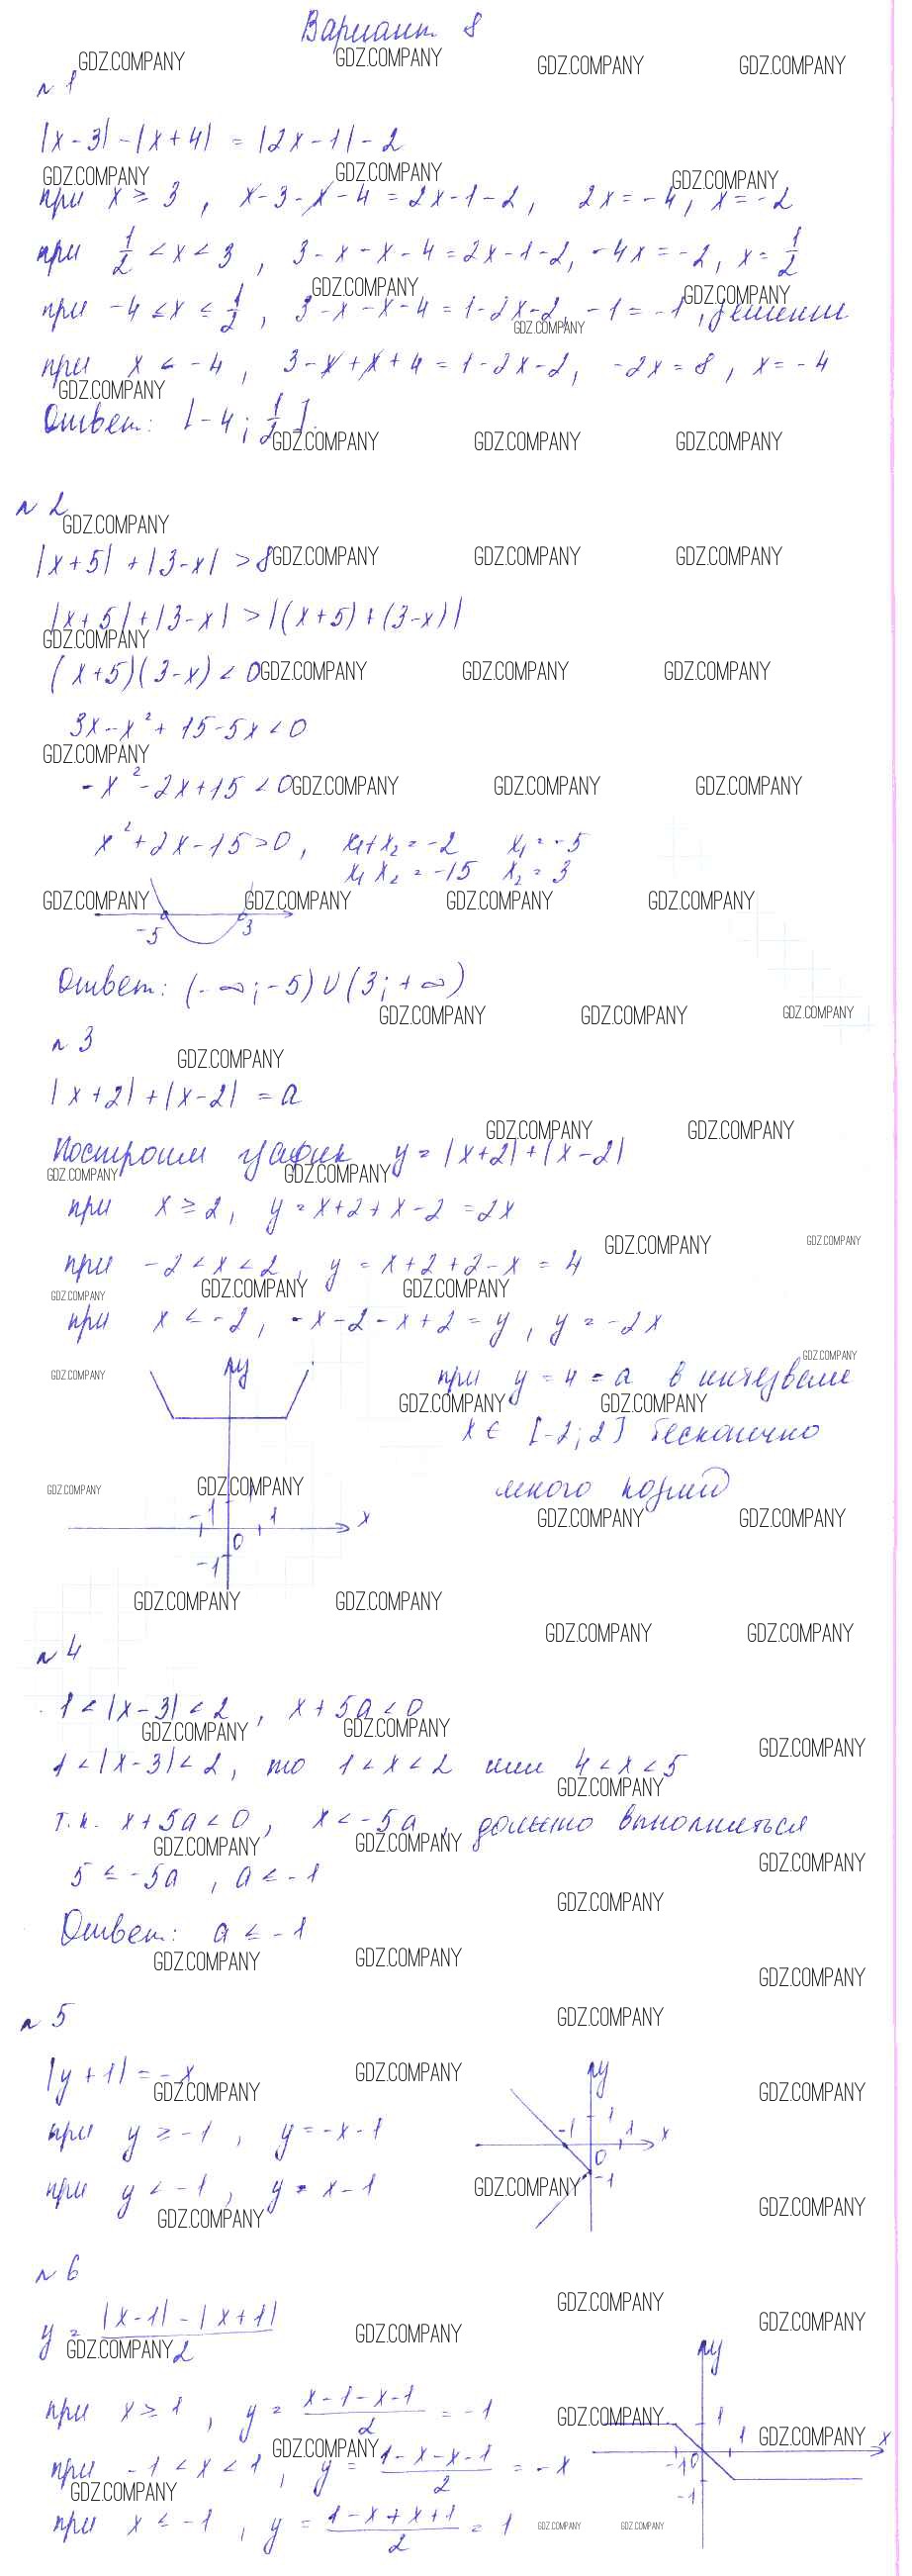 Вариант 8
GDZ.COMPANY GDZ.COMPANY GDZ.COMPANY GDZ.COMPANY
n 1
|x-3| - |x+4| = |2x-1| - 2
GDZ.COMPANY GDZ.COMPANY GDZ.COMPANY
при x ≥ 3, x-3-x-4 = 2x-1-2, 2x = -4, x = -2
при 1/2 < x < 3, 3-x-x-4 = 2x-1-2, -4x = -2, x = 1/2
GDZ.COMPANY GDZ.COMPANY
при -4 ≤ x ≤ 1/2, 3-x-x-4 = 1-2x-2, -1 = -1, решение
GDZ.COMPANY
при x < -4, 3-x+x+4 = 1-2x-2, -2x = 8, x = -4
GDZ.COMPANY
Ответ: [-4; 1/2].
GDZ.COMPANY GDZ.COMPANY GDZ.COMPANY
n 2
GDZ.COMPANY
|x+5| + |3-x| > 8
GDZ.COMPANY GDZ.COMPANY GDZ.COMPANY
|x+5| + |3-x| > |(x+5) + (3-x)|
GDZ.COMPANY
(x+5)(3-x) < 0
GDZ.COMPANY GDZ.COMPANY GDZ.COMPANY
3x - x² + 15 - 5x < 0
GDZ.COMPANY
-x² - 2x + 15 < 0
GDZ.COMPANY GDZ.COMPANY GDZ.COMPANY
x² + 2x - 15 > 0, x₁+x₂ = -2 x₁ = -5
x₁x₂ = -15 x₂ = 3
GDZ.COMPANY GDZ.COMPANY GDZ.COMPANY GDZ.COMPANY
-5 3
Ответ: (-∞; -5) ∪ (3; +∞)
GDZ.COMPANY GDZ.COMPANY GDZ.COMPANY
n 3
GDZ.COMPANY
|x+2| + |x-2| = a
GDZ.COMPANY GDZ.COMPANY
Построим график y = |x+2| + |x-2|
GDZ.COMPANY GDZ.COMPANY
при x ≥ 2, y = x+2+x-2 = 2x
GDZ.COMPANY GDZ.COMPANY
при -2 < x < 2, y = x+2+2-x = 4
GDZ.COMPANY GDZ.COMPANY GDZ.COMPANY
при x ≤ -2, -x-2-x+2 = y, y = -2x
GDZ.COMPANY
y при y = 4 = a в интервале
GDZ.COMPANY GDZ.COMPANY GDZ.COMPANY
x ∈ [-2; 2] бесконечно
много корней
GDZ.COMPANY GDZ.COMPANY
-1 1 x
GDZ.COMPANY GDZ.COMPANY
0
-1
GDZ.COMPANY GDZ.COMPANY
GDZ.COMPANY GDZ.COMPANY
n 4
1 < |x-3| < 2, x + 5a < 0
GDZ.COMPANY GDZ.COMPANY GDZ.COMPANY
1 < |x-3| < 2, то 1 < x < 2 или 4 < x < 5
GDZ.COMPANY
т.к. x + 5a < 0, x < -5a, должно выполняться
GDZ.COMPANY GDZ.COMPANY GDZ.COMPANY
5 ≤ -5a, a ≤ -1
GDZ.COMPANY
Ответ: a ≤ -1
GDZ.COMPANY GDZ.COMPANY GDZ.COMPANY
n 5
GDZ.COMPANY
|y+1| = -x
GDZ.COMPANY GDZ.COMPANY GDZ.COMPANY
y
при y ≥ -1, y = -x-1
-1 1 1 x
0
-1
при y < -1, y = x-1
GDZ.COMPANY GDZ.COMPANY GDZ.COMPANY
n 6
GDZ.COMPANY GDZ.COMPANY
y = (|x-1| - |x+1|)/2
GDZ.COMPANY GDZ.COMPANY
y
при x ≥ 1, y = (x-1-x-1)/2 = -1
GDZ.COMPANY 1
GDZ.COMPANY GDZ.COMPANY 1 x
при -1 < x < 1, y = (1-x-x-1)/2 = -x
-1 0
-1
GDZ.COMPANY
при x ≤ -1, y = (1-x+x+1)/2 = 1
GDZ.COMPANY GDZ.COMPANY